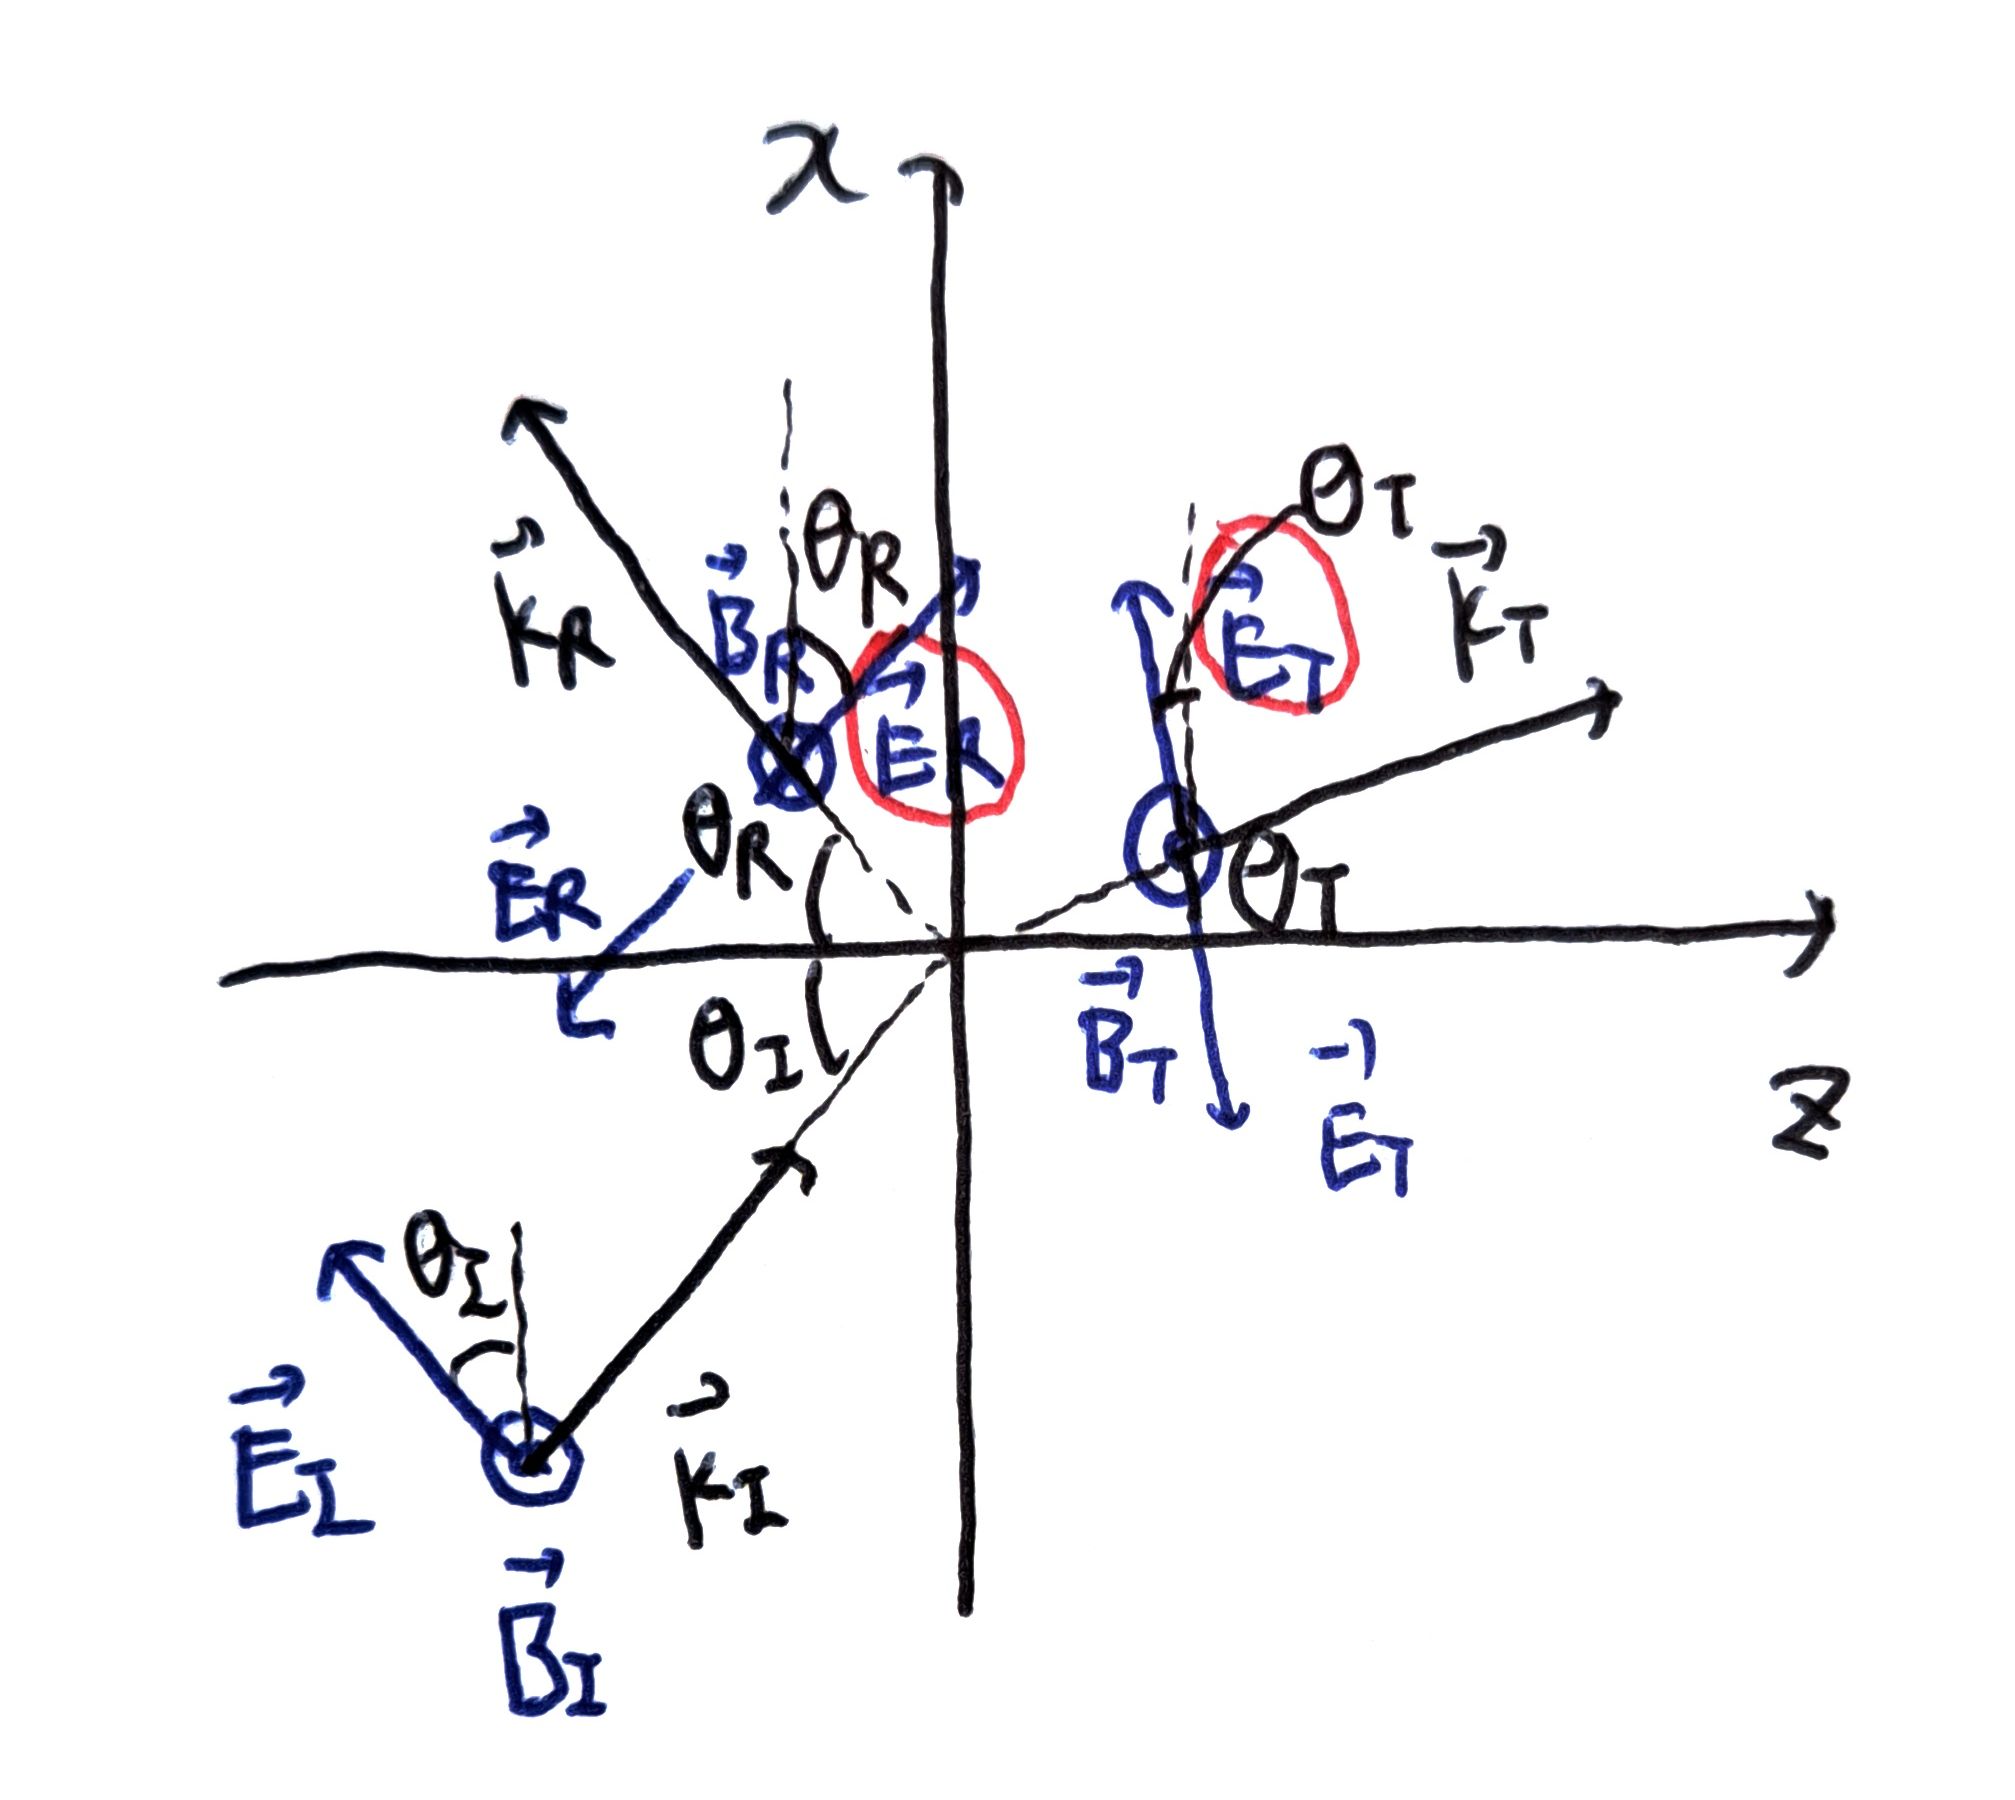 x
θT
θR
k⃗R
B⃗R
E⃗T
k⃗T
E⃗R
θR
E⃗R
θT
θI
B⃗T
E⃗T
z
θI
E⃗I
k⃗I
B⃗I